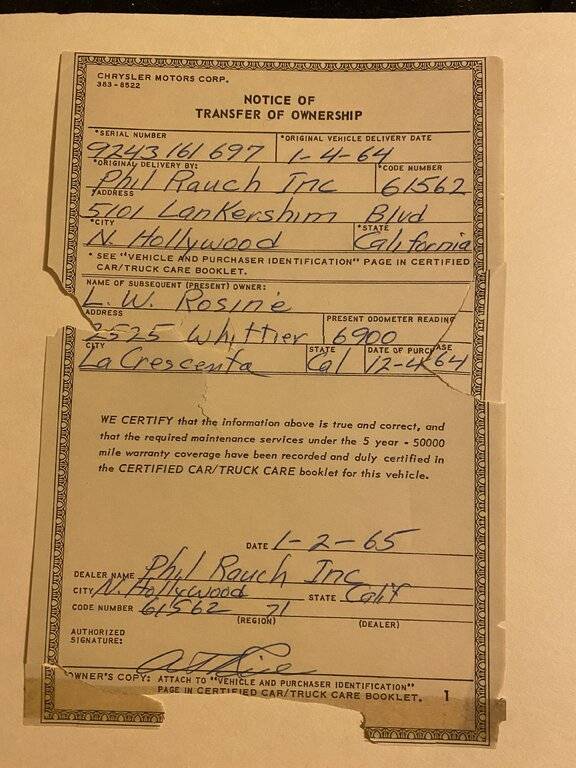 CHRYSLER MOTORS CORP.
383-8522
NOTICE OF
TRANSFER OF OWNERSHIP
*SERIAL NUMBER *ORIGINAL VEHICLE DELIVERY DATE
9243161697 1-4-64
*ORIGINAL DELIVERY BY: *CODE NUMBER
Phil Rauch Inc 61562
*ADDRESS
5101 Lankershim Blvd
*CITY *STATE
N. Hollywood California
* SEE "VEHICLE AND PURCHASER IDENTIFICATION" PAGE IN CERTIFIED
CAR/TRUCK CARE BOOKLET.
NAME OF SUBSEQUENT (PRESENT) OWNER:
L. W. Rosine
ADDRESS PRESENT ODOMETER READING
2525 Whittier 6900
CITY STATE DATE OF PURCHASE
La Crescenta Cal 12-4-64
WE CERTIFY that the information above is true and correct, and
that the required maintenance services under the 5 year - 50000
mile warranty coverage have been recorded and duly certified in
the CERTIFIED CAR/TRUCK CARE booklet for this vehicle.
DATE 1-2-65
DEALER NAME Phil Rauch Inc
CITY N. Hollywood STATE Calif
CODE NUMBER 61562 71
(REGION) (DEALER)
AUTHORIZED
SIGNATURE:
OWNER'S COPY: ATTACH TO "VEHICLE AND PURCHASER IDENTIFICATION"
PAGE IN CERTIFIED CAR/TRUCK CARE BOOKLET. 1